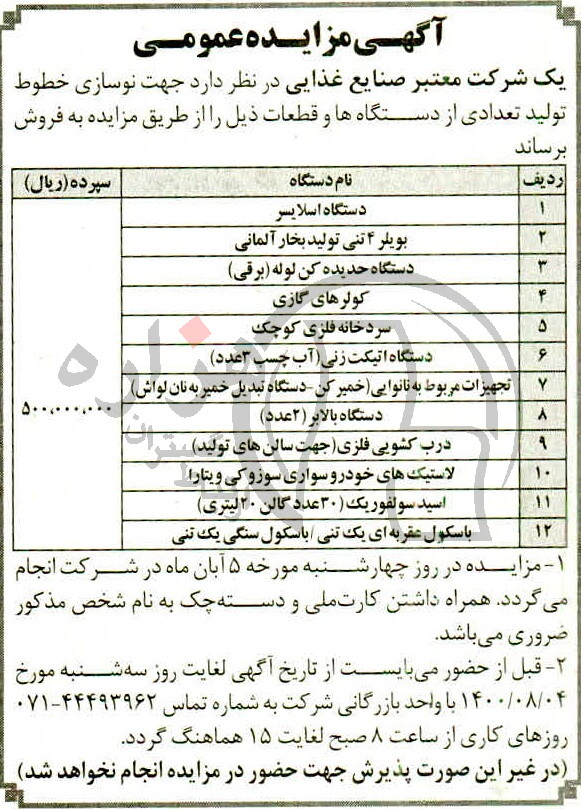 آگهی مزایده عمومی
یک شرکت معتبر صنایع غذایی در نظر دارد جهت نوسازی خطوط
تولید تعدادی از دستگاه ها و قطعات ذیل را از طریق مزایده به فروش
برساند
ردیف نام دستگاه سپرده (ریال)
۱ دستگاه اسلایسر
۲ بویلر ۴ تنی تولید بخار آلمانی
۳ دستگاه حدیده کن لوله (برقی)
۴ کولرهای گازی
۵ سردخانه فلزی کوچک
۶ دستگاه اتیکت زنی (آب چسب ۳عدد)
۷ تجهیزات مربوط به نانوایی (خمیر کن - دستگاه تبدیل خمیر به نان لواش)
۵۰۰,۰۰۰,۰۰۰
۸ دستگاه بالابر (۲عدد)
۹ درب کشویی فلزی (جهت سالن های تولید)
۱۰ لاستیک های خودرو سواری سوزوکی ویتارا
۱۱ اسید سولفوریک (۳۰عدد گالن ۲۰لیتری)
۱۲ باسکول عقربه ای یک تنی / باسکول سنگی یک تنی
۱- مزایده در روز چهارشنبه مورخه ۵ آبان ماه در شرکت انجام
می‌گردد. همراه داشتن کارت‌ملی و دسته‌چک به نام شخص مذکور
ضروری می‌باشد.
۲- قبل از حضور می‌بایست از تاریخ آگهی لغایت روز سه‌شنبه مورخ
۱۴۰۰/۰۸/۰۴ با واحد بازرگانی شرکت به شماره تماس ۴۴۴۹۳۹۶۲-۰۷۱
روزهای کاری از ساعت ۸ صبح لغایت ۱۵ هماهنگ گردد.
(در غیر این صورت پذیرش جهت حضور در مزایده انجام نخواهد شد)